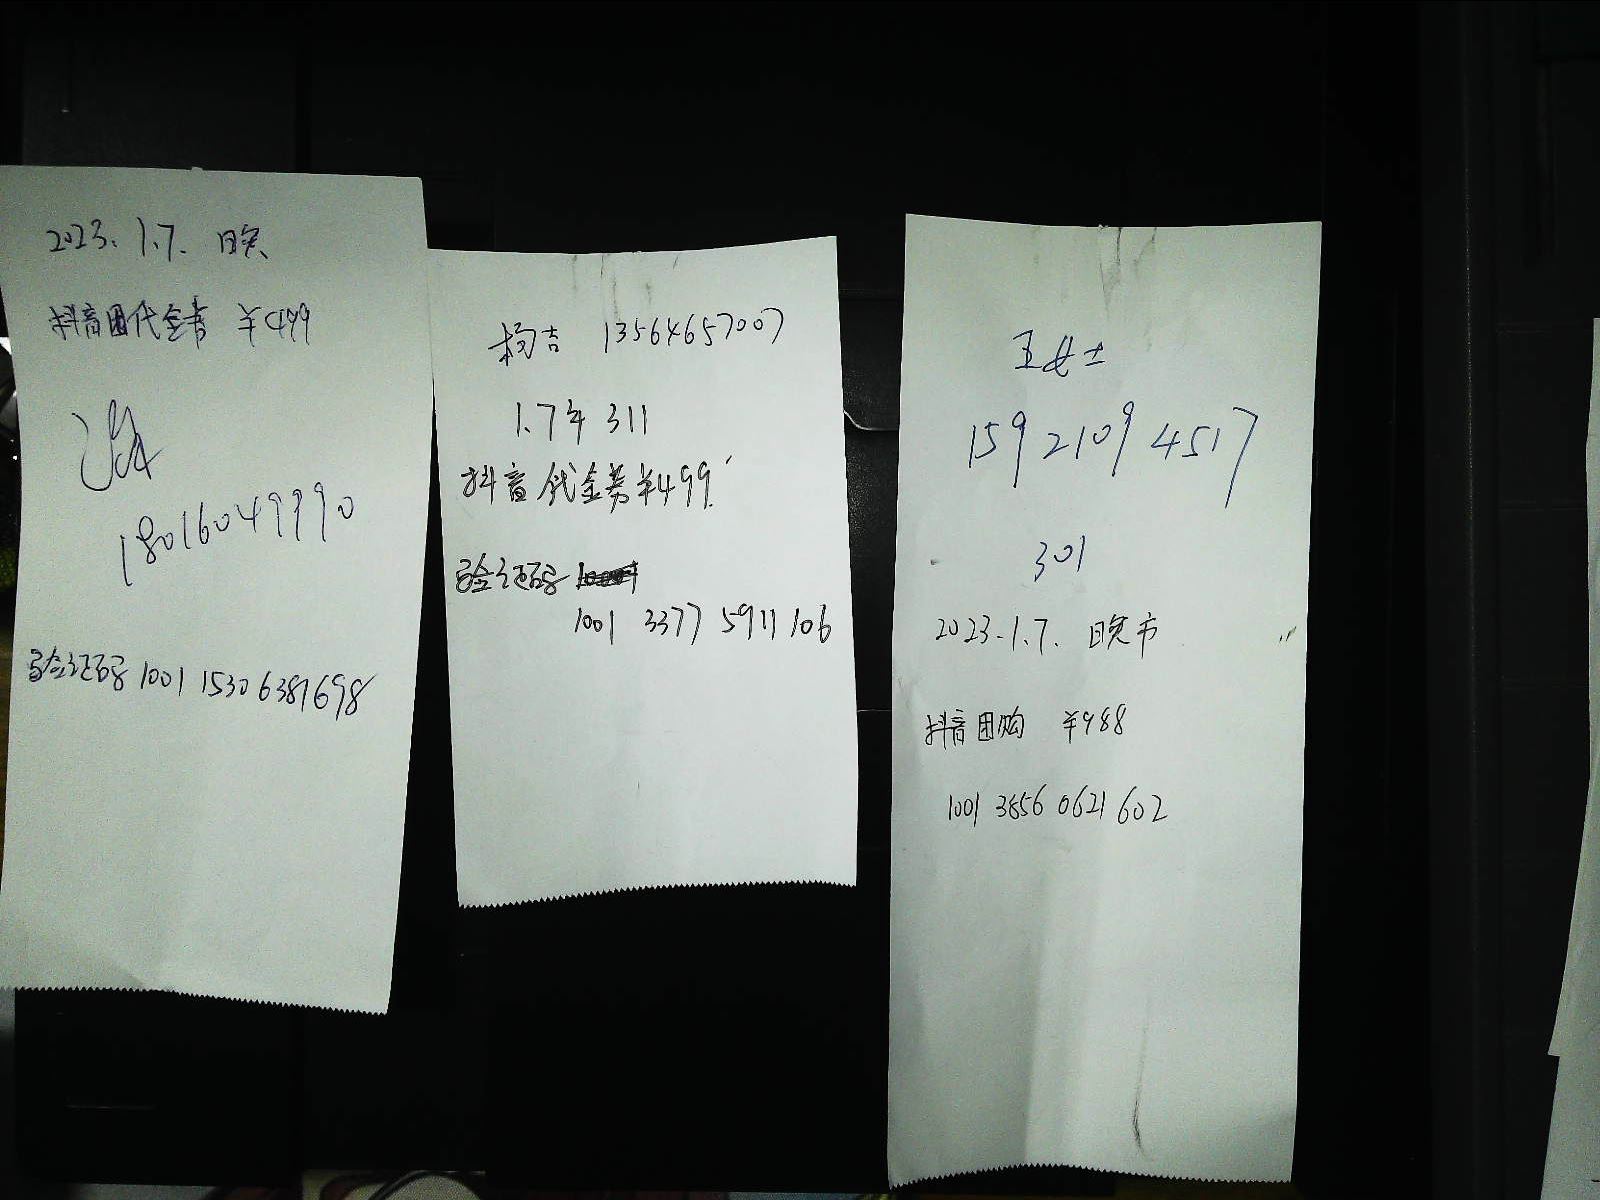 2023.1.7. 晚
抖音团代金券 ¥499
18016049990
验证码 1001 1530 6387698
杨吉 13564657007
1.7午 311
抖音代金券¥499
验证码
1001 3377 5911 106
王女士
159 2109 4517
301
2023.1.7. 晚市
抖音团购 ¥988
1001 3856 0621 602